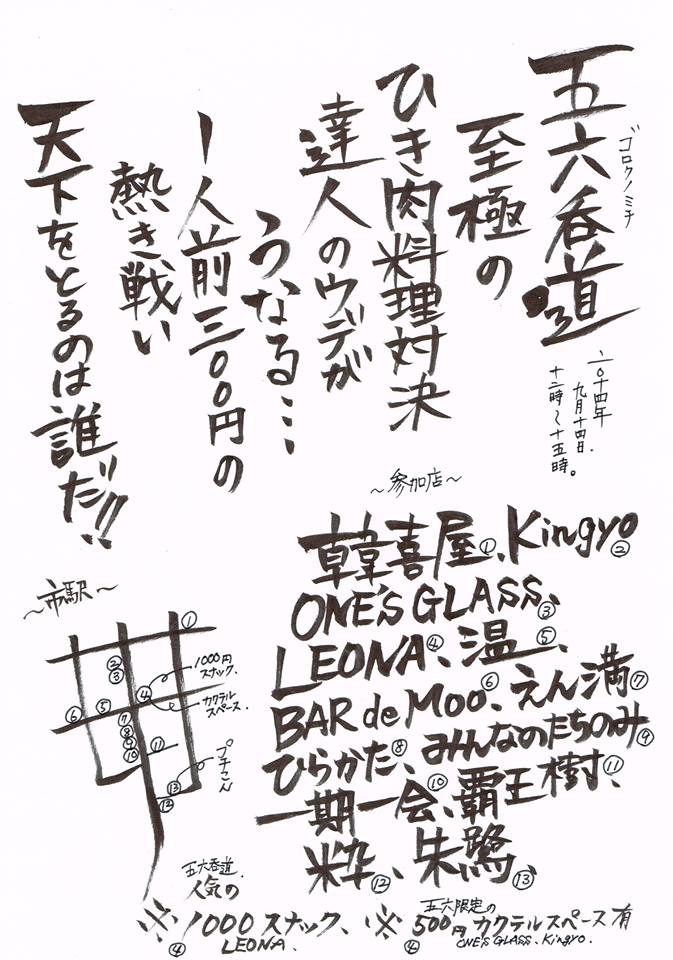 五六呑道
ゴロクノミチ
二〇十四年
九月十四日.
十二時〜十五時。
至極の
ひき肉料理対決
達人のウデが
うなる…
一人前三〇〇円の
熱き戦い
天下をとるのは誰だ!!
〜参加店〜
韓喜屋①、Kingyo②
ONE'S GLASS③、
LEONA④、温⑤、
BAR de Moo⑥、えん満⑦
ひらかた⑧、みんなのたちのみ⑨
一期一会⑩、覇王樹⑪、
粋⑫、朱鷺⑬
〜市駅〜
①
②
③
1000円
スナック.
④
カクテル
スペース.
⑥ ⑤
⑦
⑧
⑨
⑩ ⑪
プチこん
⑬
⑫
五六呑道.
人気の
※1000スナック、
④ LEONA.
五六限定の
※500円カクテルスペース有
④ ONE'S GLASS、Kingyo.